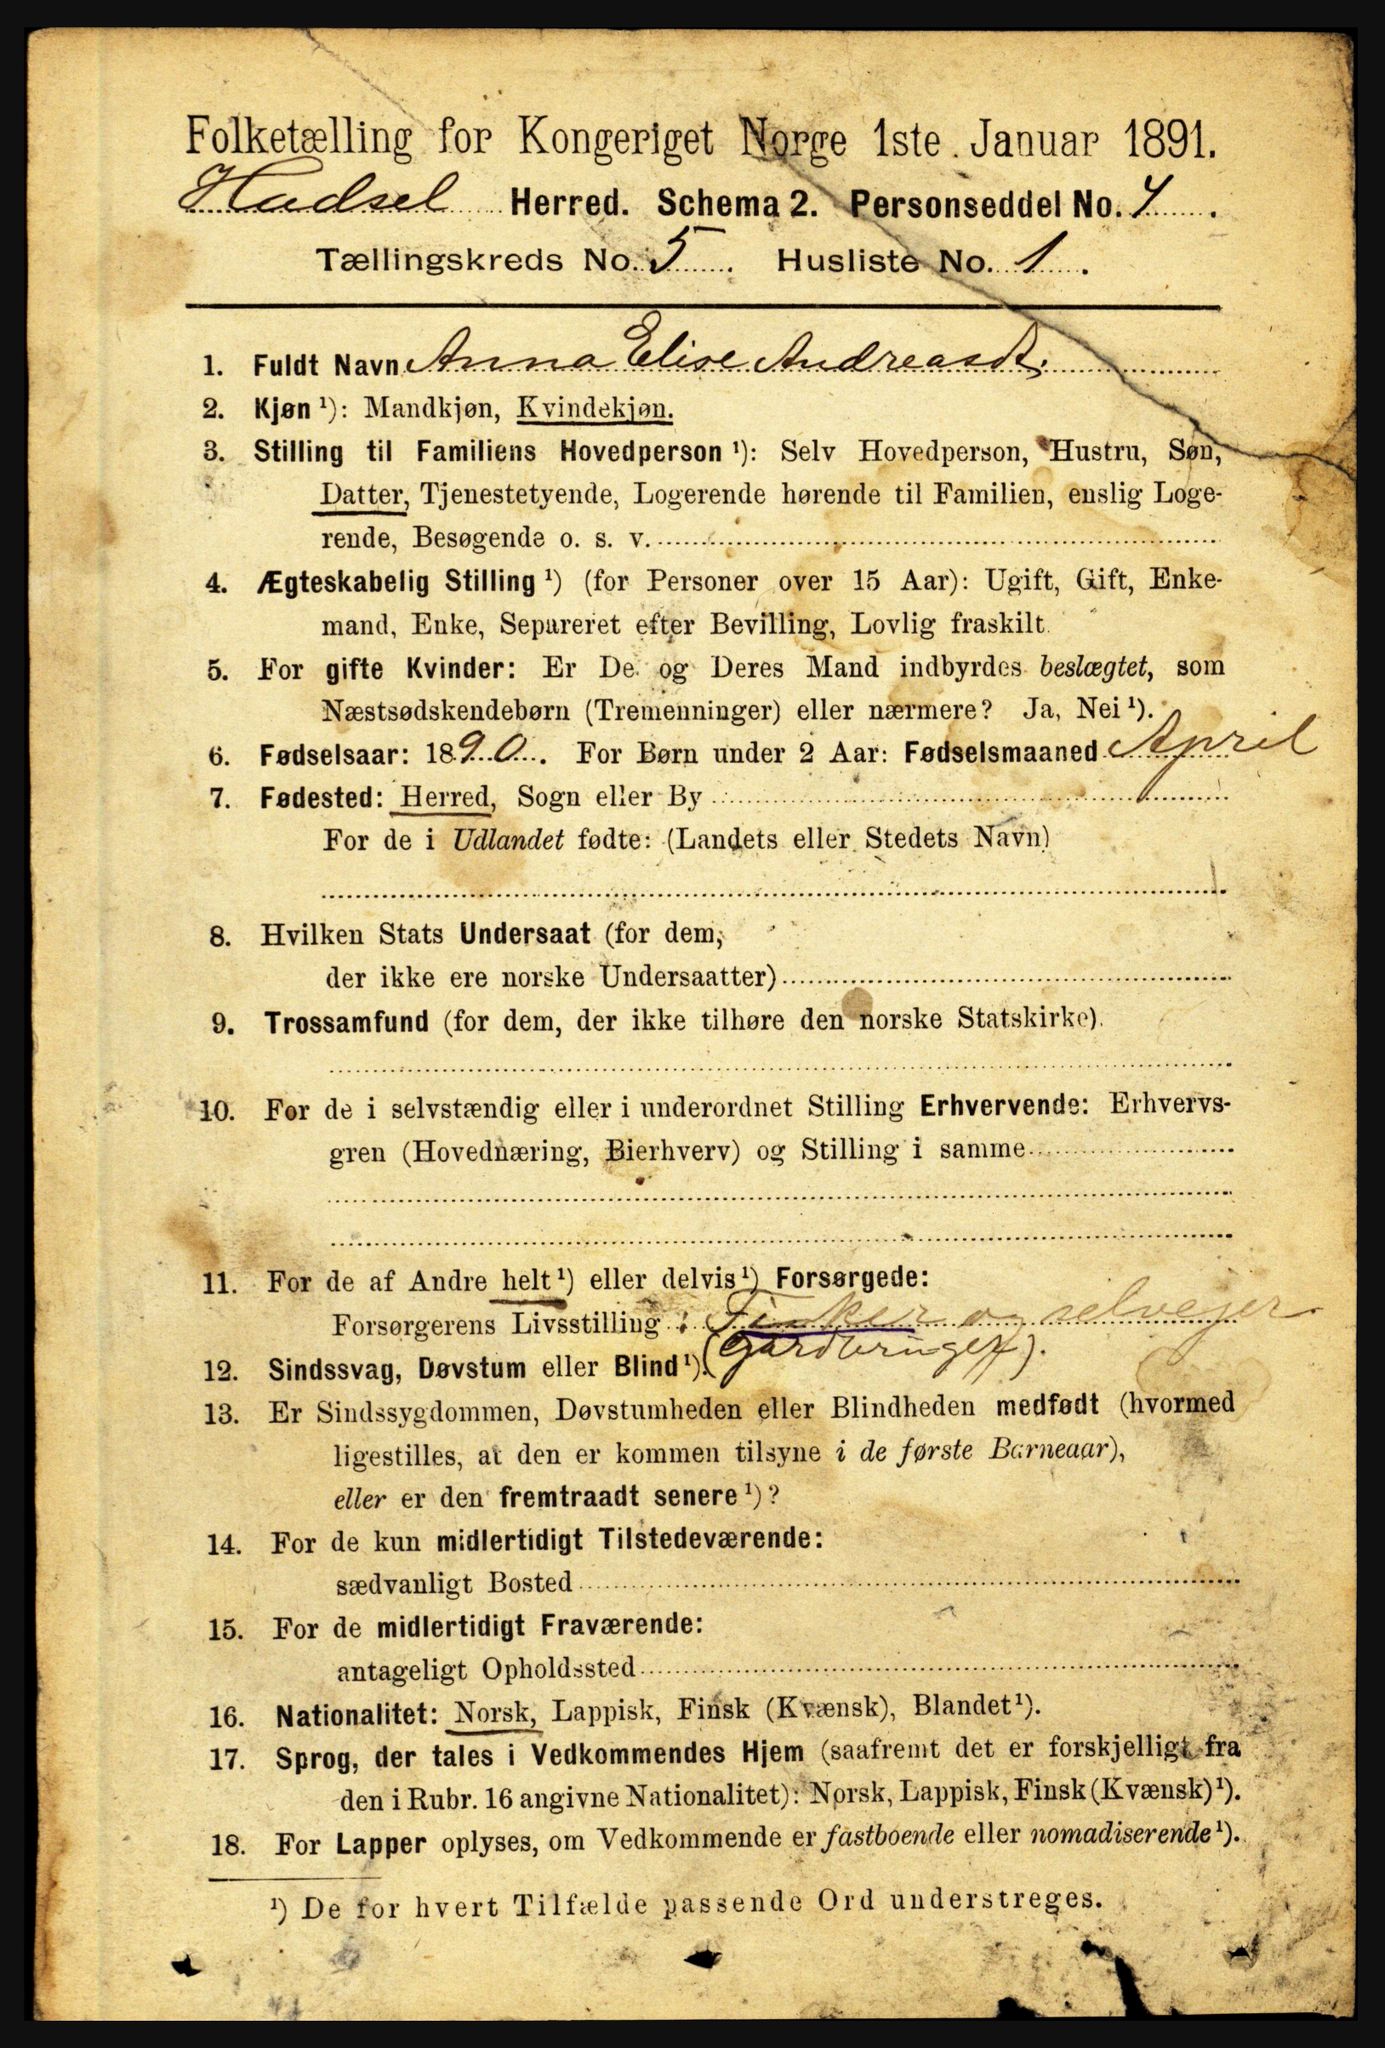 Folketælling for Kongeriget Norge 1ste Januar 1891.
Hadsel Herred. Schema 2. Personseddel No. 4.
Tællingskreds No. 5. Husliste No. 1.
1. Fuldt Navn Anna Elise Andreasdt.
2. Kjøn ¹): Mandkjøn, Kvindekjøn.
3. Stilling til Familiens Hovedperson ¹): Selv Hovedperson, Hustru, Søn,
Datter, Tjenestetyende, Logerende hørende til Familien, enslig Loge-
rende, Besøgende o. s. v.
4. Ægteskabelig Stilling ¹) (for Personer over 15 Aar): Ugift, Gift, Enke-
mand, Enke, Separeret efter Bevilling, Lovlig fraskilt.
5. For gifte Kvinder: Er De og Deres Mand indbyrdes beslægtet, som
Næstsødskendebørn (Tremenninger) eller nærmere? Ja, Nei ¹).
6. Fødselsaar: 1890. For Børn under 2 Aar: Fødselsmaaned April
7. Fødested: Herred, Sogn eller By
For de i Udlandet fødte: (Landets eller Stedets Navn)
8. Hvilken Stats Undersaat (for dem,
der ikke ere norske Undersaatter)
9. Trossamfund (for dem, der ikke tilhøre den norske Statskirke).
10. For de i selvstændig eller i underordnet Stilling Erhvervende: Erhvervs-
gren (Hovednæring, Bierhverv) og Stilling i samme
11. For de af Andre helt ¹) eller delvis ¹) Forsørgede:
Forsørgerens Livsstilling: Fisker og selveier
12. Sindssvag, Døvstum eller Blind ¹). (Gardbruger).
13. Er Sindssygdommen, Døvstumheden eller Blindheden medfødt (hvormed
ligestilles, at den er kommen tilsyne i de første Barneaar),
eller er den fremtraadt senere ¹)?
14. For de kun midlertidigt Tilstedeværende:
sædvanligt Bosted
15. For de midlertidigt Fraværende:
antageligt Opholdssted
16. Nationalitet: Norsk, Lappisk, Finsk (Kvænsk), Blandet ¹).
17. Sprog, der tales i Vedkommendes Hjem (saafremt det er forskjelligt fra
den i Rubr. 16 angivne Nationalitet): Norsk, Lappisk, Finsk (Kvænsk) ¹).
18. For Lapper oplyses, om Vedkommende er fastboende eller nomadiserende ¹).
¹) De for hvert Tilfælde passende Ord understreges.